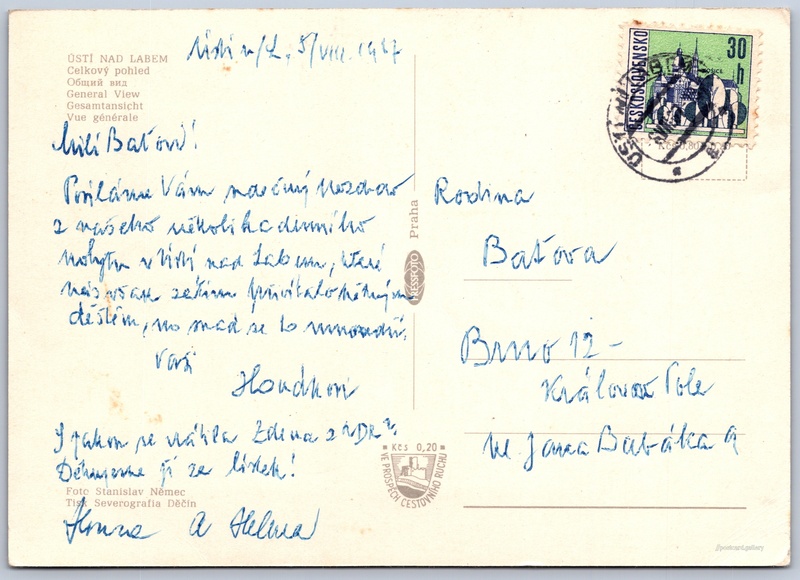 ÚSTÍ NAD LABEM
Celkový pohled
Общий вид
General View
Gesamtansicht
Vue générale
Ústí n/L, 5/VIII. 1967
Milí Baťovi!
Posíláme Vám srdečný pozdrav
z našeho několikadenního
pobytu v Ústí nad Labem, které
nás však zatím přivítalo
deštěm, no snad se to umoudří.
Vaši
Houdkovi
jak se vrátila Zdena z "DR".
Děkujeme jí za lístek!
Foto Stanislav Němec
Tisk Severografia Děčín
Honza a Helena
Praha
PRESSFOTO
Kčs 0,20
VE PROSPĚCH CESTOVNÍHO RUCHU
ČESKOSLOVENSKO
30
h
Rodina
Baťova
Brno 12 -
Královo Pole
ul. Jana Babáka 9
postcard.gallery